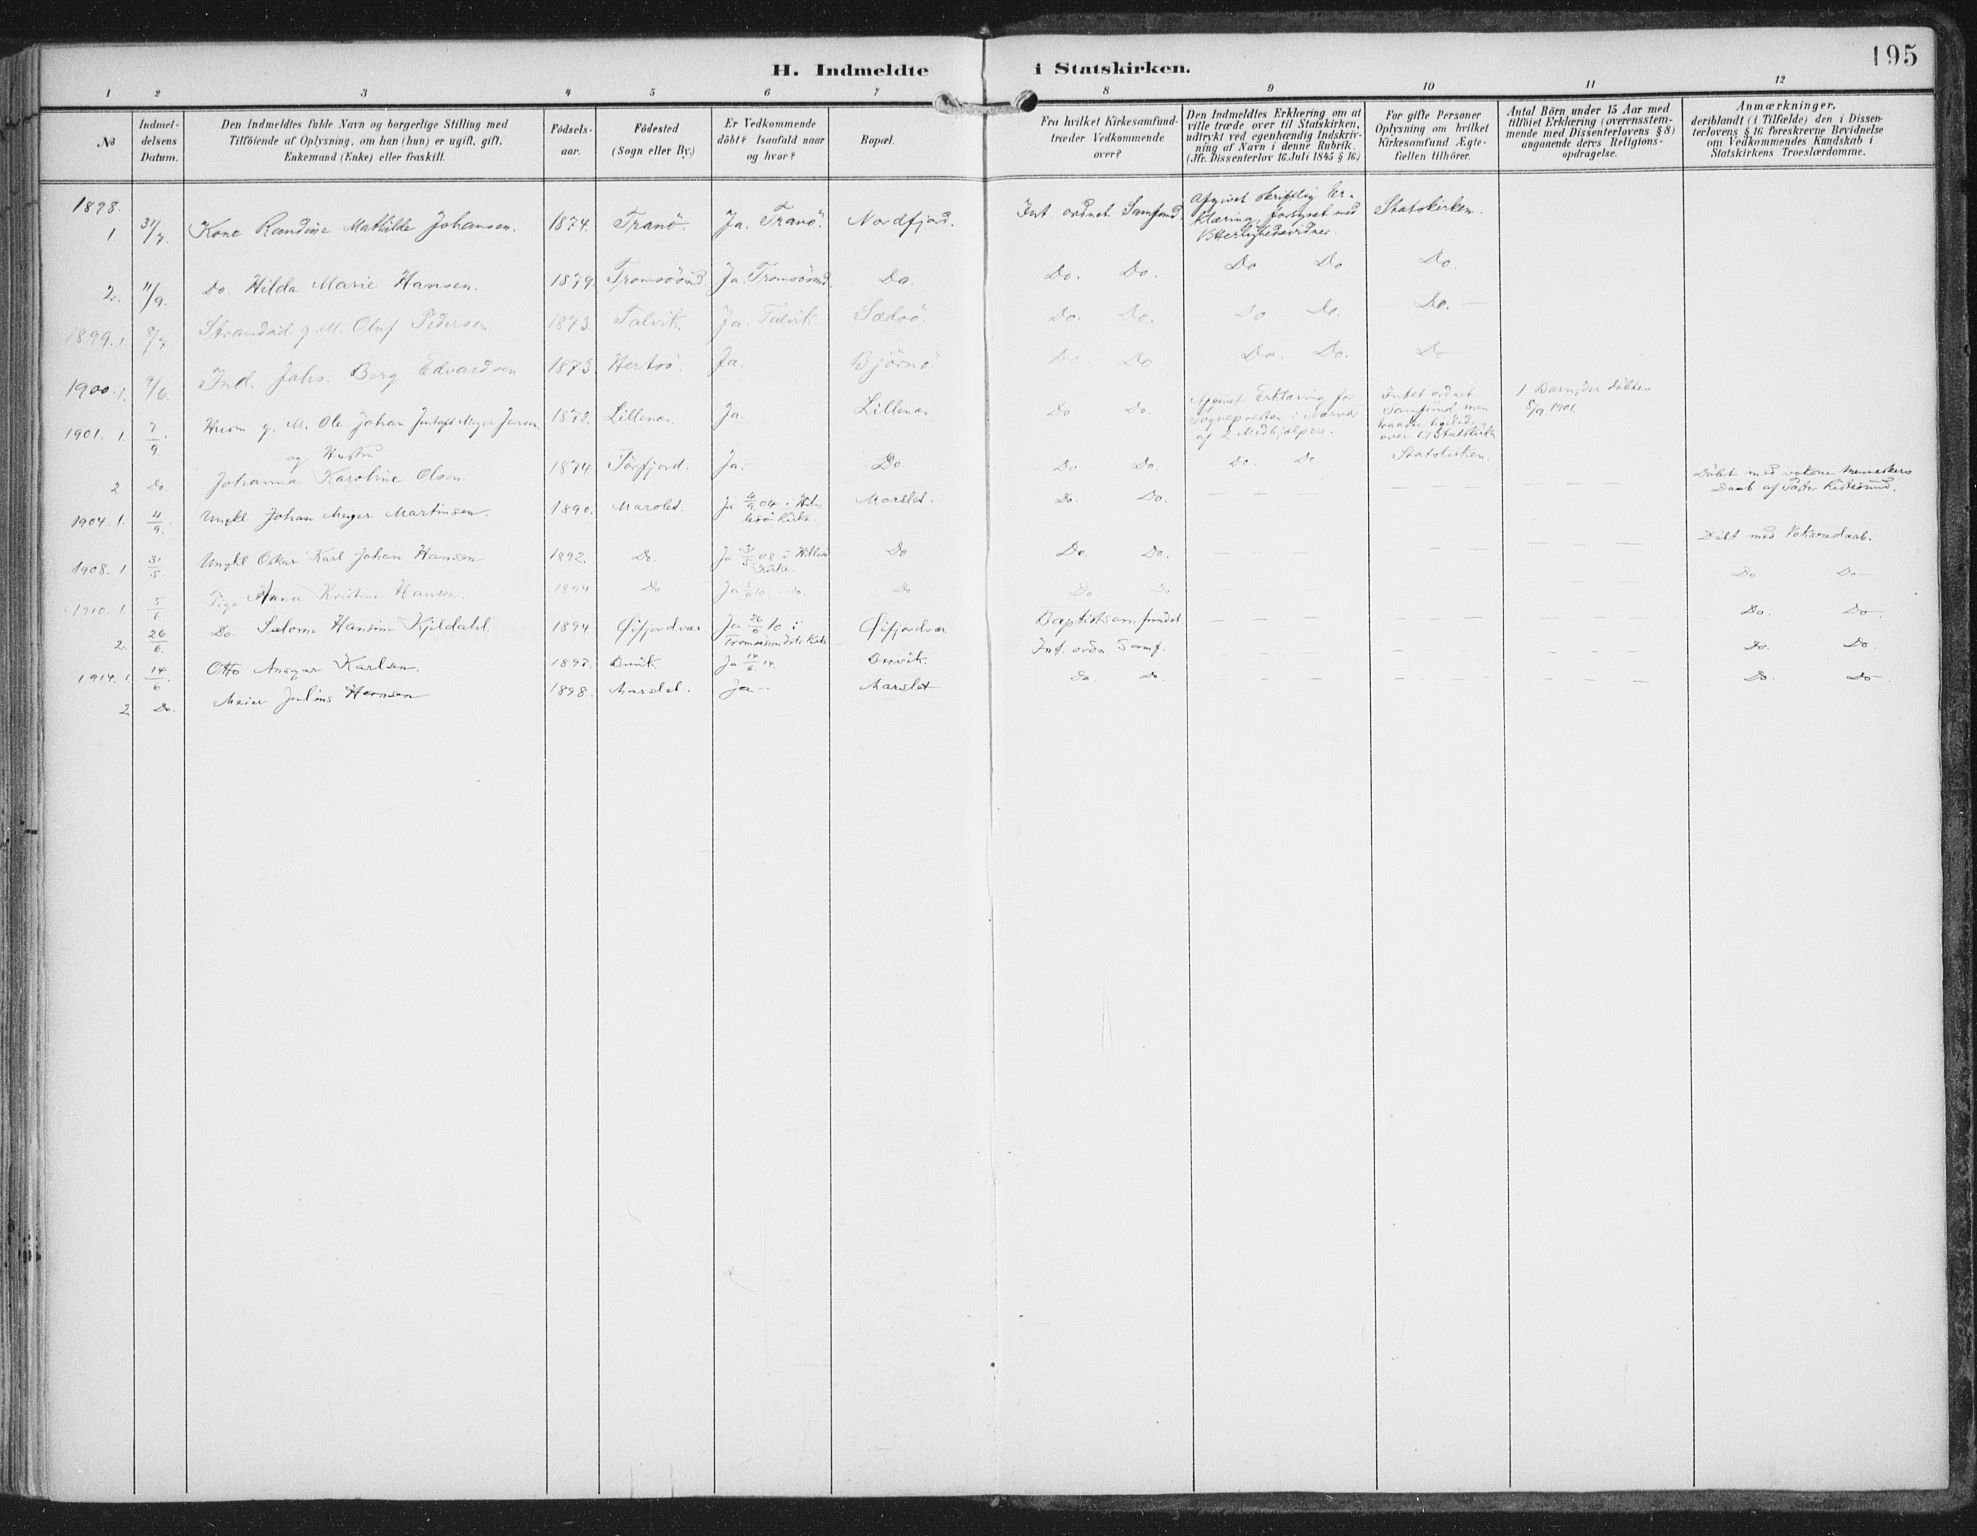 195
H. Indmeldte i Statskirken.
1 2 3 4 5 6 7 8 9 10 11 12
No
Indmel-
delsens
Datum.
Den Indmeldtes fulde Navn og borgerlige Stilling med
Tilföiende af Oplysning, om han (hun) er ugift, gift,
Enkemand (Enke) eller fraskilt.
Födsels-
aar.
Födested
(Sogn eller By.)
Er Vedkommende
döbt? Isaafald naar
og hvor?
Bopæl.
Fra hvilket Kirkesamfund
træder Vedkommende
over?
Den Indmeldtes Erklæring om at
ville træde over til Statskirken,
udtrykt ved egenhændig Indskriv-
ning af Navn i denne Rubrik.
(Jfr. Dissenterlov 16 Juli 1845 § 16.)
For gifte Personer
Oplysning om hvilket
Kirkesamfund Ægte-
fællen tilhörer.
Antal Börn under 15 Aar med
tilföiet Erklæring (overensstem-
mende med Dissenterlovens § 8)
angaaende deres Religions-
opdragelse.
Anmærkninger.
deriblandt (i Tilfælde) den i Dissen-
terlovens § 16 foreskrevne Bevidnelse
om Vedkommendes Kundskab i
Statskirkens Troeslærdomme.
1898.
1. 31/7 Kone Randine Mathilde Johansen. 1874. Tranö. Ja. Tranö. Nordfjord. Int. ordnet Samfund. Afgivet skriftlig Er-
klæring, forsynet med
Statskirken.
2. 11/9. Do Hilda Marie Hansen. 1879. Tromsösund Ja. Tromsösund. Do. Do. Do. Do Do Do.
1899. 1. 8/7 g. M. Oluf Pedersen. 1873. Talvik. Ja. Talvik Sædsö. Do. Do. Do Do. Do.
1900. 1. 9/6. Ind. Johs. Berg Edvardsen 1873 Ja. Björnö Do. Do Do. Do. Do
1901. 1. 7/9 g. M. Ole Johan Meyer Jensen. 1872. Lillenes. Ja. Lillenes Do Do. Afgivet Erklæring for
Sognepresten i Nærvær
af 2 Medhjælpere.
Intet ordnet
Samfund men
over til Statskirken
1 Barn, der döbtes
8/9 1901.
og Hustru
2 Do. Johanna Karoline Olsen. 1874 Ja. Do Do Do. Do. Do. Statskirken.
1904. 1. 4/9. Ungkl. Johan Meyer Martinsen. 1890. Ja 4/9 04 i Hil-
lesö Kirke. Do. Do. Döbt med
Daab af Pastor
1908. 1 31/5 Ungkl Oskar Karl Johan Hansen 1892. Do. Ja 31/5 08 i Hillesö
Kirke. Do Do. Do. Döbt med Voksendaab.
1910. 1. 5/6 Pige Hana Kristine Hansen. 1894 Do Do Do Do Do. Do
2. 26/6. Do. Salome Hansine Kjeldahl. 1894 Ja 26/6 10 i
Tromsösundets Kirke Baptistsamfundet Do. Do
1914. 1. 14/6. Otto Ansgar Karlsen. 1897. Ja 14/6 14. Int. ordn. Samf. Do. Do.
2 Do. Meier Julius Hansen 1898. Marslet. Ja Marslet Do. Do. Do. Do